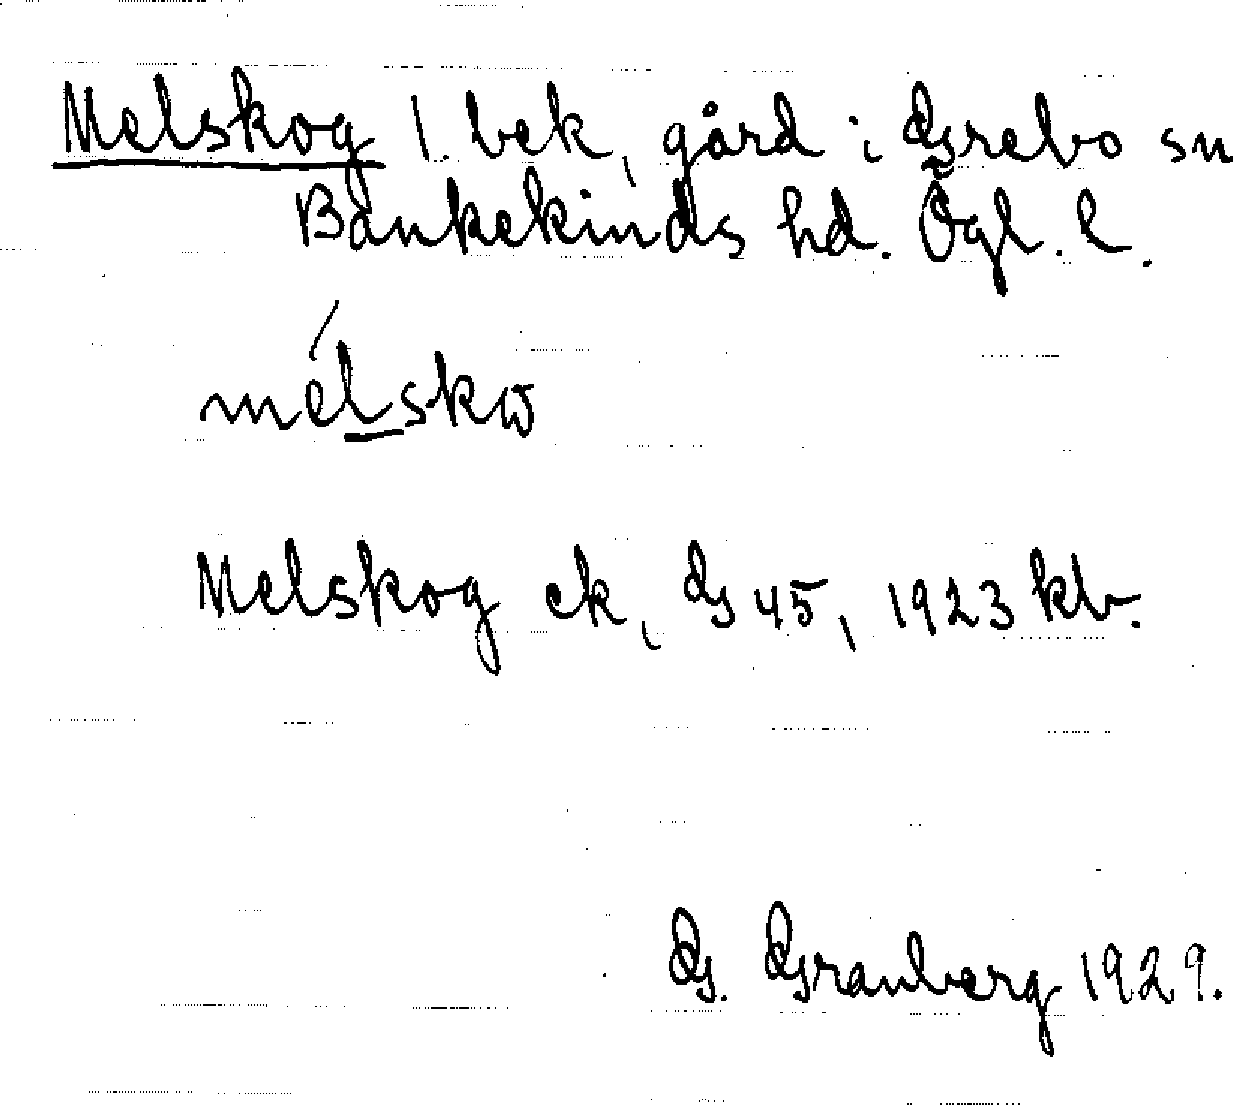 Melskog 1. bek, gård i Grebo sn
Bankekinds hd. Ögl. l.
mélskω
Melskog ek, G 45, 1923 kb.
G. Granberg 1929.